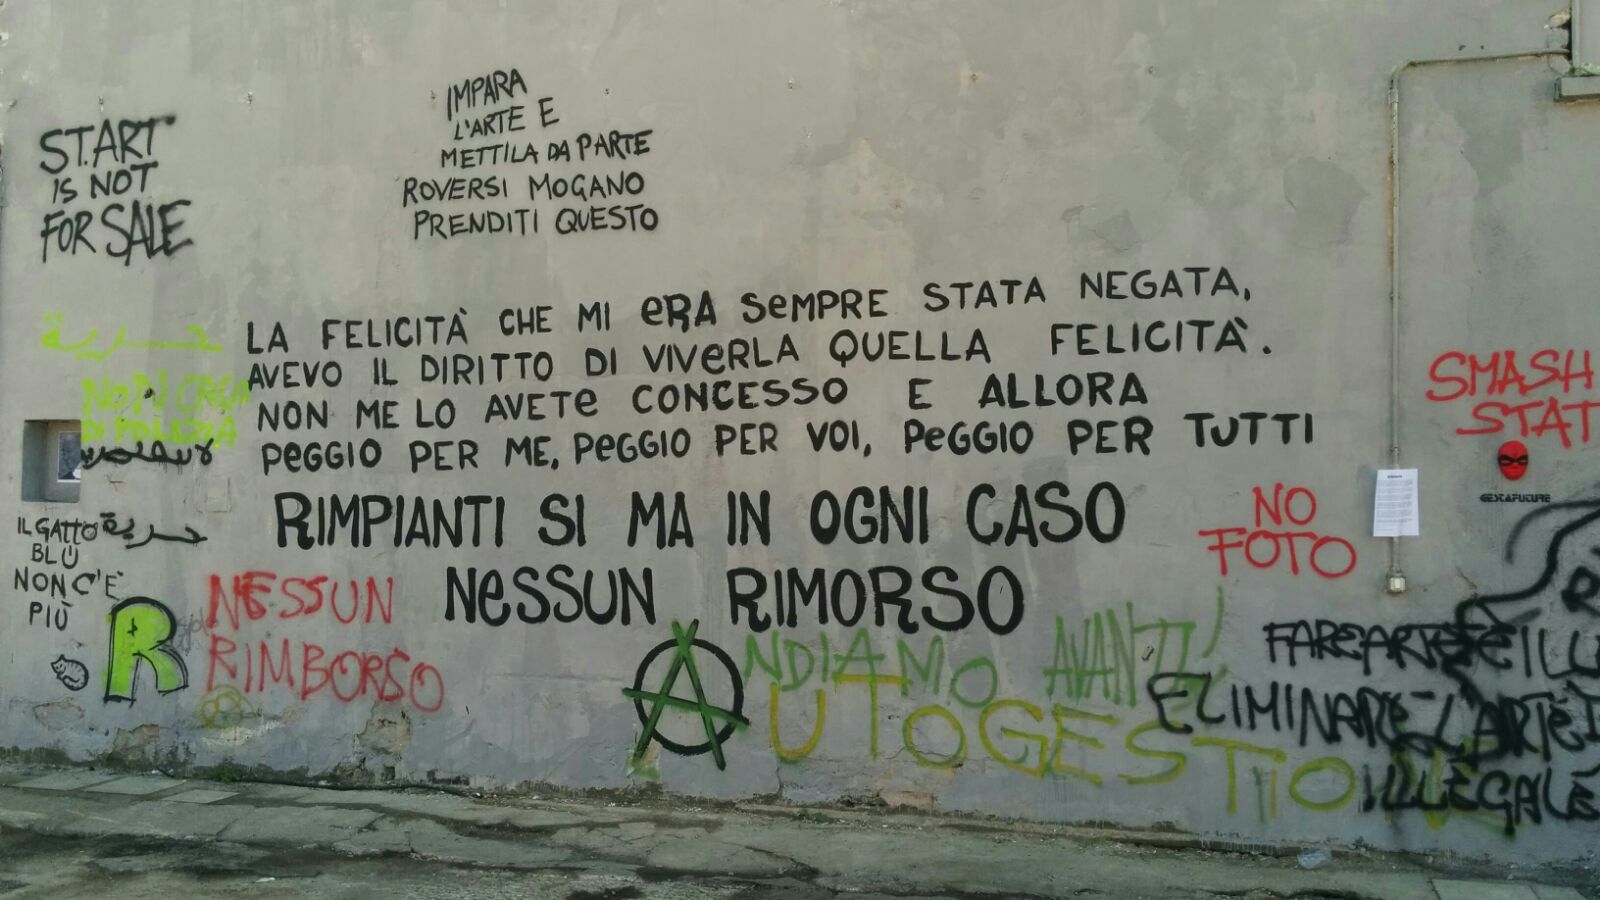 ST.ART
IS NOT
FOR SALE
IMPARA
L'ARTE E
METTILA DA PARTE
ROVERSI MOGANO
PRENDITI QUESTO
LA FELICITÀ CHE MI eRA SeMPRE STATA NEGATA,
AVEVO IL DIRITTO DI VIVeRLA QUELLA FELICITÀ.
NON ME LO AVETe CONCESSO E ALLORA
PeGGIO PER ME, PeGGIO PER VOI, PeGGIO PER TUTTI
RIMPIANTI SI MA IN OGNI CASO
NeSSUN RIMORSO
حرية
NON
DI POLIZIA
حرية
IL GATTO
BLÙ
NON C'È
PIÙ
R
NESSUN
RIMBORSO
ANDIAMO AVANTI
AUTOGESTIONE
SMASH
STAT
GESTAFUTURE
NO
FOTO
FARE ARTE È ILL
ELIMINARE L'ARTE È
ILLEGALE